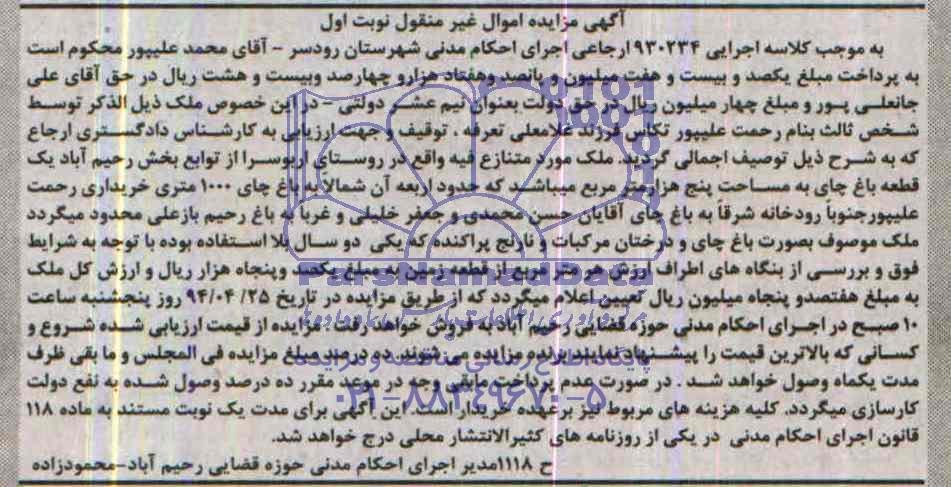 آگهی مزایده اموال غیر منقول نوبت اول
به موجب کلاسه اجرایی ۹۳۰۲۳۴ ارجاعی اجرای احکام مدنی شهرستان رودسر - آقای محمد علیپور محکوم است
به پرداخت مبلغ یکصد و بیست و هفت میلیون و پانصد وهفتاد هزارو چهارصد وبیست و هشت ریال در حق آقای علی
جانعلی پور و مبلغ چهار میلیون ریال در حق دولت بعنوان نیم عشر دولتی - در این خصوص ملک ذیل الذکر توسط
شخص ثالث بنام رحمت علیپور تکاس فرزند غلامعلی تعرفه . توقیف و جهت ارزیابی به کارشناس دادگستری ارجاع
که به شرح ذیل توصیف اجمالی گردید. ملک مورد متنازع فیه واقع در روستای اربوسرا از توابع بخش رحیم آباد یک
قطعه باغ چای به مساحت پنج هزارمتر مربع میباشد که حدود اربعه آن شمالاً به باغ چای ۱۰۰۰ متری خریداری رحمت
علیپورجنوباً رودخانه شرقاً به باغ چای آقایان حسن محمدی و جعفر خلیلی و غرباً به باغ رحیم بازعلی محدود میگردد
ملک موصوف بصورت باغ چای و درختان مرکبات و نارنج پراکنده که یکی دو سال بلا استفاده بوده با توجه به شرایط
فوق و بررسی از بنگاه های اطراف ارزش هر متر مربع از قطعه زمین به مبلغ یکصد وپنجاه هزار ریال و ارزش کل ملک
به مبلغ هفتصدو پنجاه میلیون ریال تعیین اعلام میگردد که از طریق مزایده در تاریخ ۹۴/۰۴/۲۵ روز پنجشنبه ساعت
۱۰ صبح در اجرای احکام مدنی حوزه قضایی رحیم آباد به فروش خواهد رفت . مزایده از قیمت ارزیابی شده شروع و
کسانی که بالاترین قیمت را پیشنهاد نمایند برنده مزایده می شوند. ده درصد مبلغ مزایده فی المجلس و ما بقی ظرف
مدت یکماه وصول خواهد شد . در صورت عدم پرداخت مابقی وجه در موعد مقرر ده درصد وصول شده به نفع دولت
کارسازی میگردد. کلیه هزینه های مربوط نیز برعهده خریدار است. این آگهی برای مدت یک نوبت مستند به ماده ۱۱۸
قانون اجرای احکام مدنی در یکی از روزنامه های کثیرالانتشار محلی درج خواهد شد.
ح ۱۱۱۸مدیر اجرای احکام مدنی حوزه قضایی رحیم آباد-محمودزاده
ParsNamadData
۰۲۱-۸۸۳۴۹۶۷۰-۵